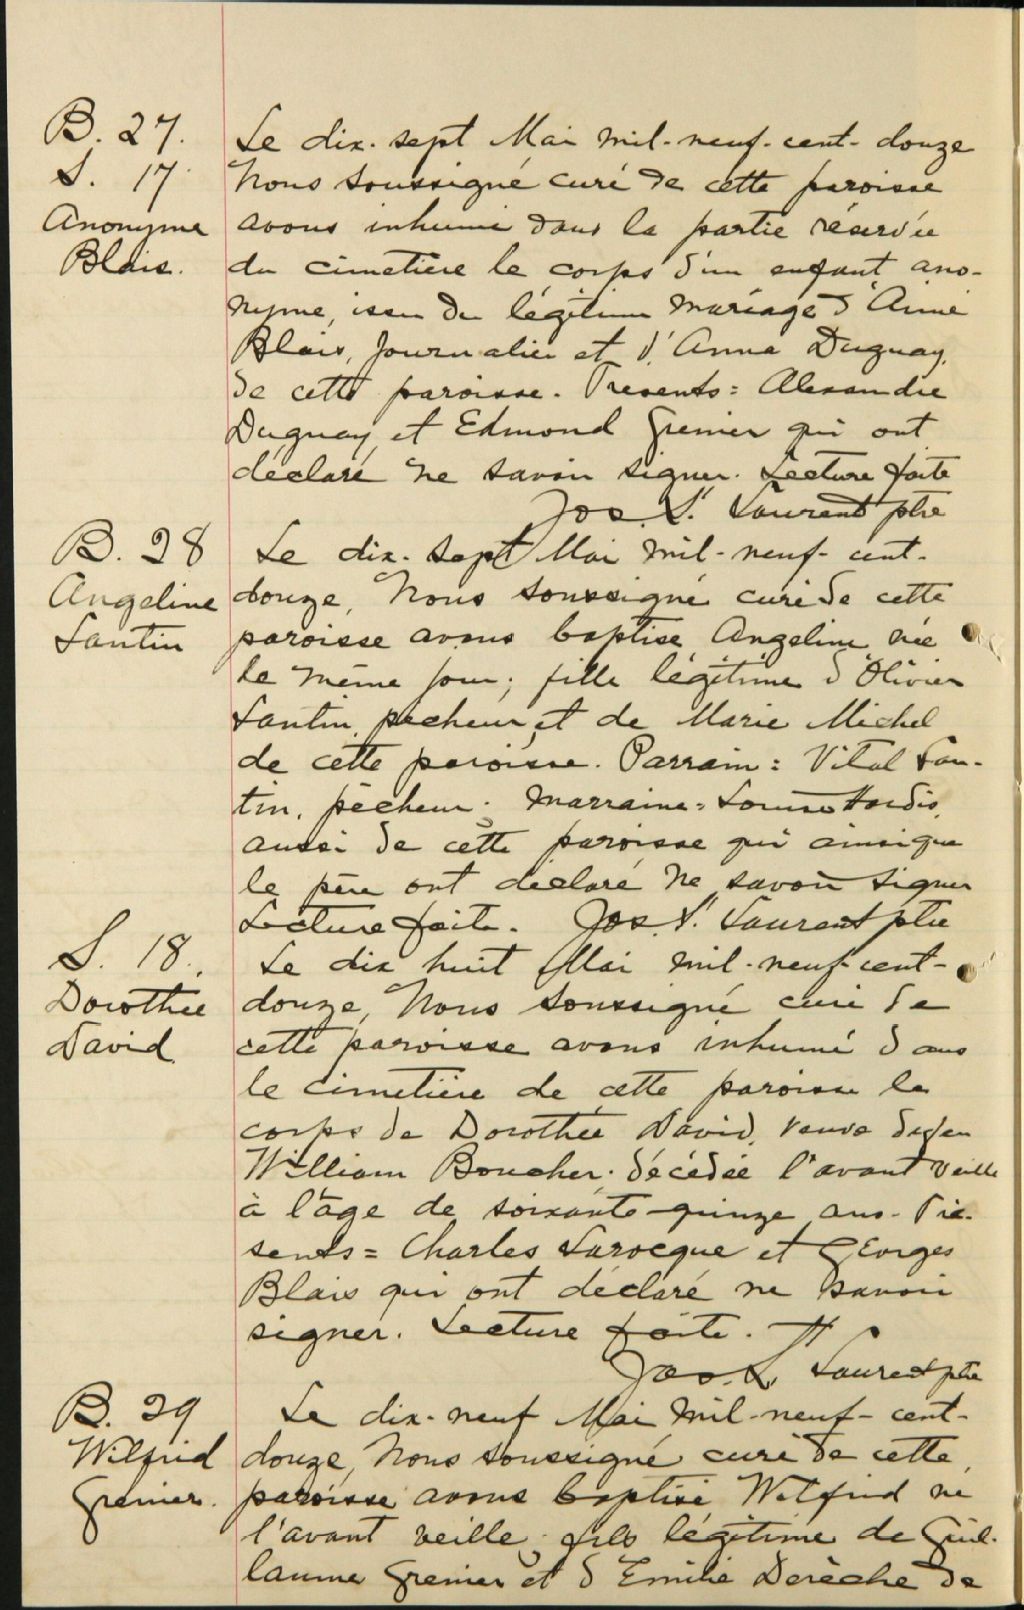 B. 27.
S. 17
Anonyme
Blais.
Le dix-sept Mai mil-neuf-cent-douze
Nous soussigné curé de cette paroisse
avons inhumé dans la partie réservée
du cimetière le corps d'un enfant ano-
nyme, issu du légitime mariage d'Aimé
Blais, Journalier et d'Anna Duguay,
de cette paroisse. Présents: Alexandre
Duguay et Edmond Grenier qui ont
déclaré ne savoir signer. Lecture faite
Jos. St. Laurent ptre
B. 28
Angeline
Lantin
Le dix-sept Mai mil-neuf-cent-
douze, Nous soussigné curé de cette
paroisse avons baptisé Angeline née
le même jour; fille légitime d'Olivier
Lantin, pêcheur, et de Marie Michel
de cette paroisse. Parrain: Vital Lan-
tin, pêcheur. Marraine: Louise
aussi de cette paroisse qui ainsi que
le père ont déclaré ne savoir signer
Lecture faite. Jos. St. Laurent ptre
S. 18.
Dorothée
David
Le dix huit Mai mil-neuf-cent-
douze, Nous soussigné curé de
cette paroisse avons inhumé dans
le cimetière de cette paroisse le
corps de Dorothée David, veuve de feu
William Boucher, décédée l'avant veille
à l'âge de soixante-quinze ans. Pré-
sents= Charles Larocque et Georges
Blais qui ont déclaré ne savoir
signer. Lecture faite.
Jos. St. Laurent ptre
B. 29
Wilfrid
Grenier.
Le dix-neuf Mai mil-neuf-cent-
douze, Nous soussigné curé de cette
paroisse avons baptisé Wilfrid né
l'avant veille, fils légitime de Guil-
laume Grenier et d'Emilie Derèche de